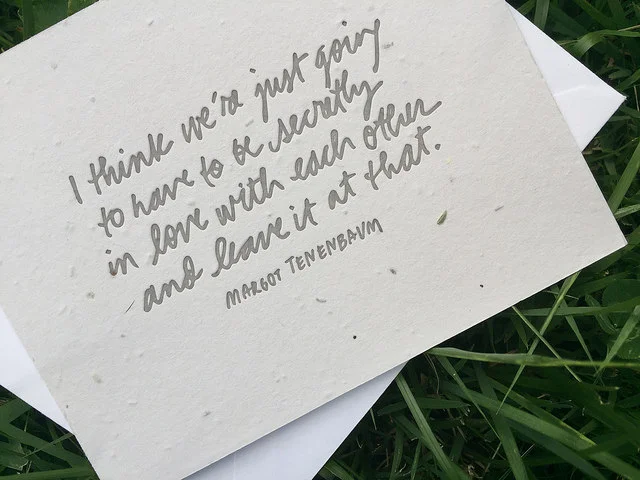 I think we're just going
to have to be secretly
in love with each other
and leave it at that.
MARGOT TENENBAUM